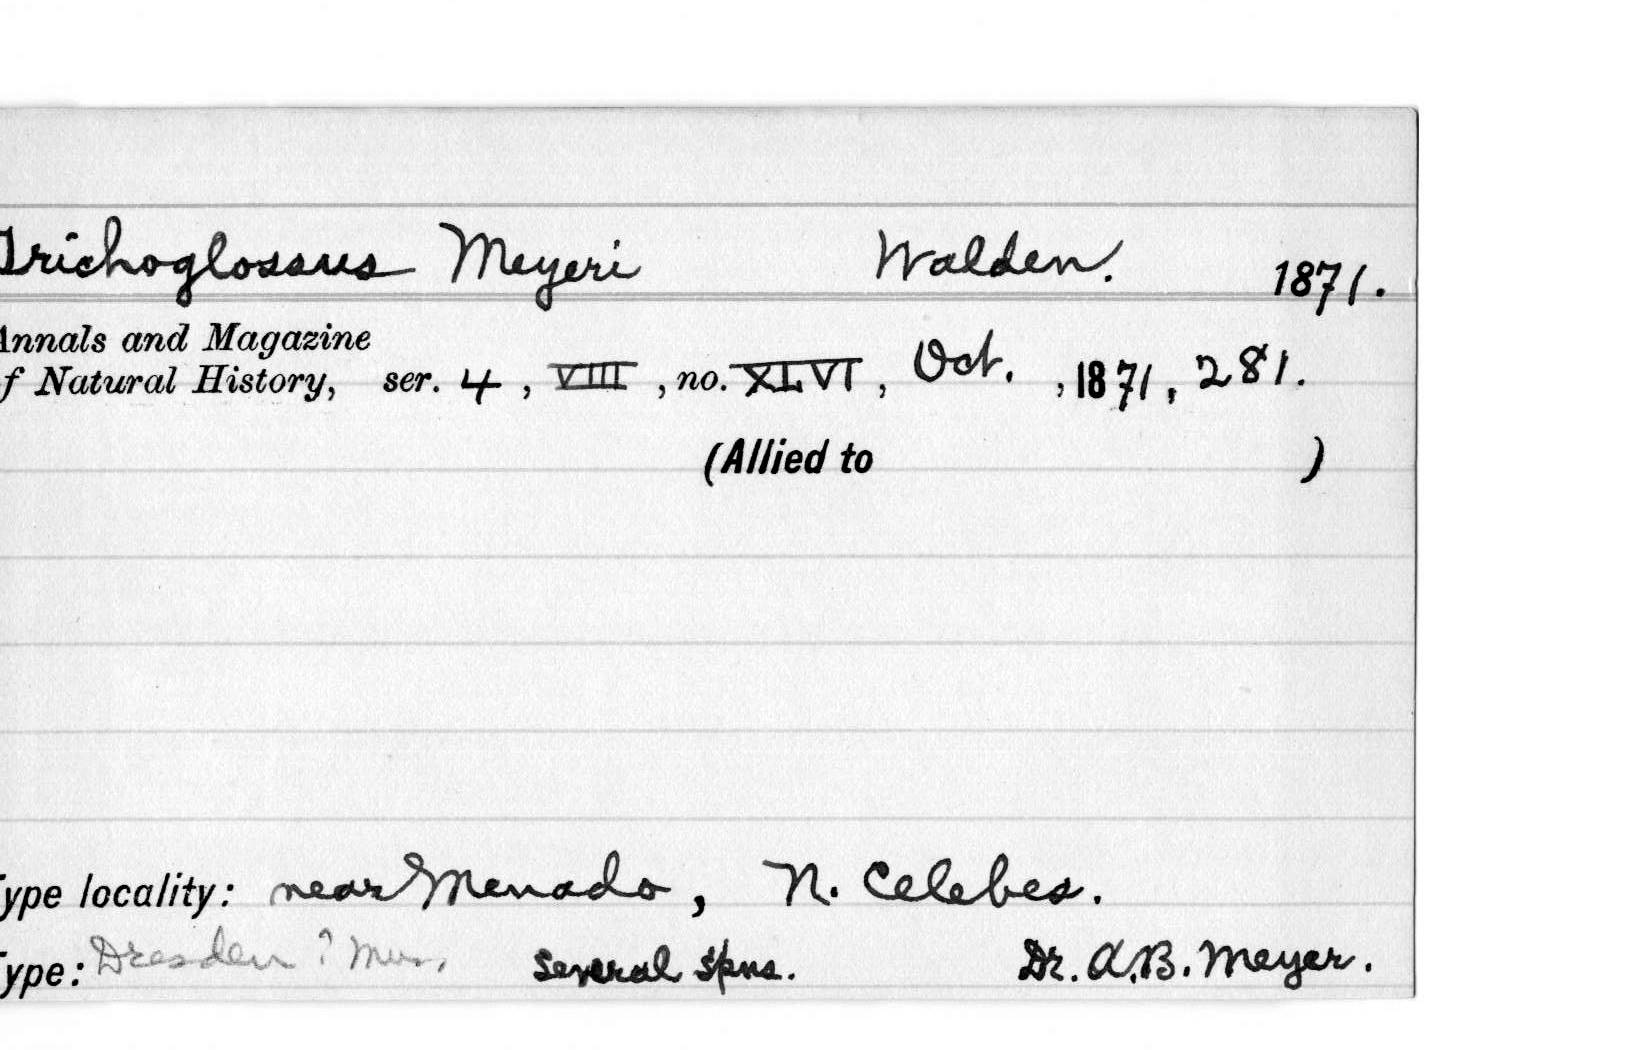 Trichoglossus Meyeri Walden. 1871.
Annals and Magazine
of Natural History, ser. 4, VIII, no. XLVI, Oct. , 1871, 281.
(Allied to )
Type locality: near Menado, N. Celebes.
Type: Dresden ? Mus. several spns. Dr. A.B. Meyer.